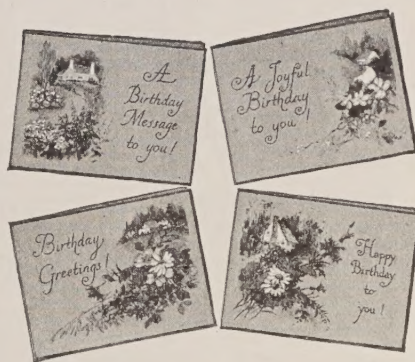 A
Birthday
Message
to you!
A Joyful
Birthday
to you!
Birthday
Greetings!
Happy
Birthday
to
you!